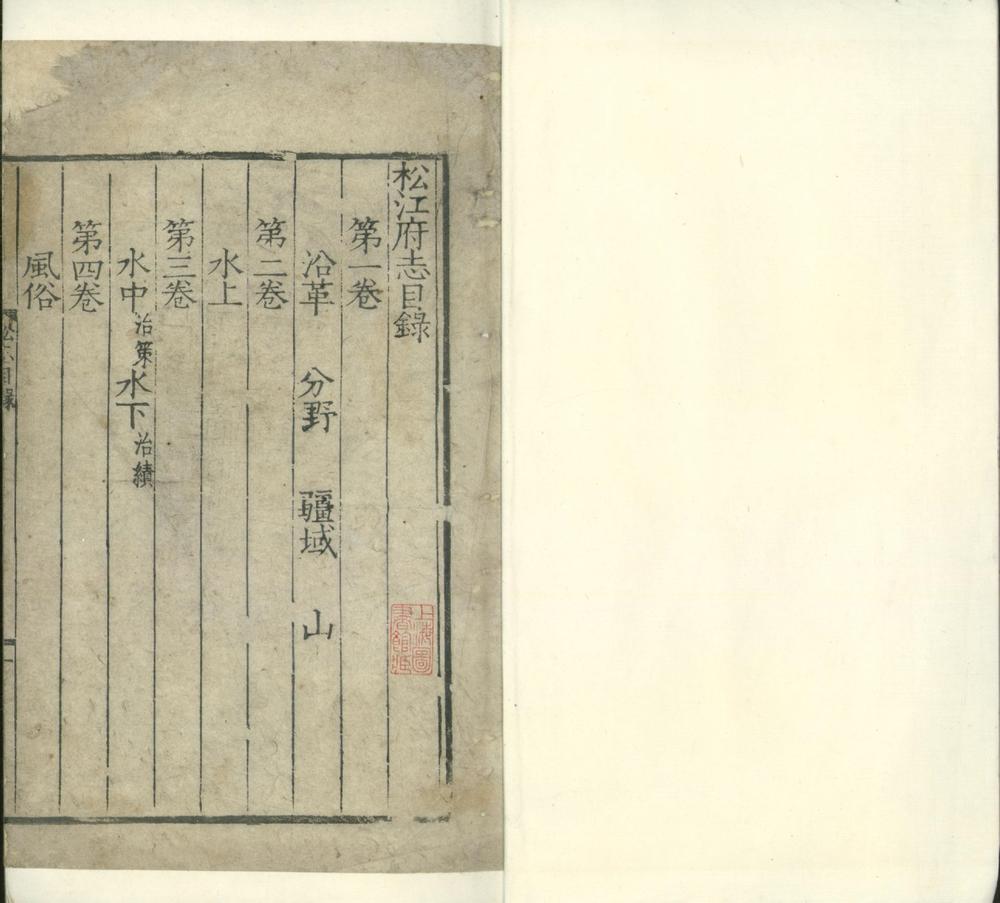 松江府志目錄
第一卷
沿革 分野 疆域 山
第二卷
水上
第三卷
水中治策水下治績
第四卷
風俗
松江目錄
一
上海圖書館藏